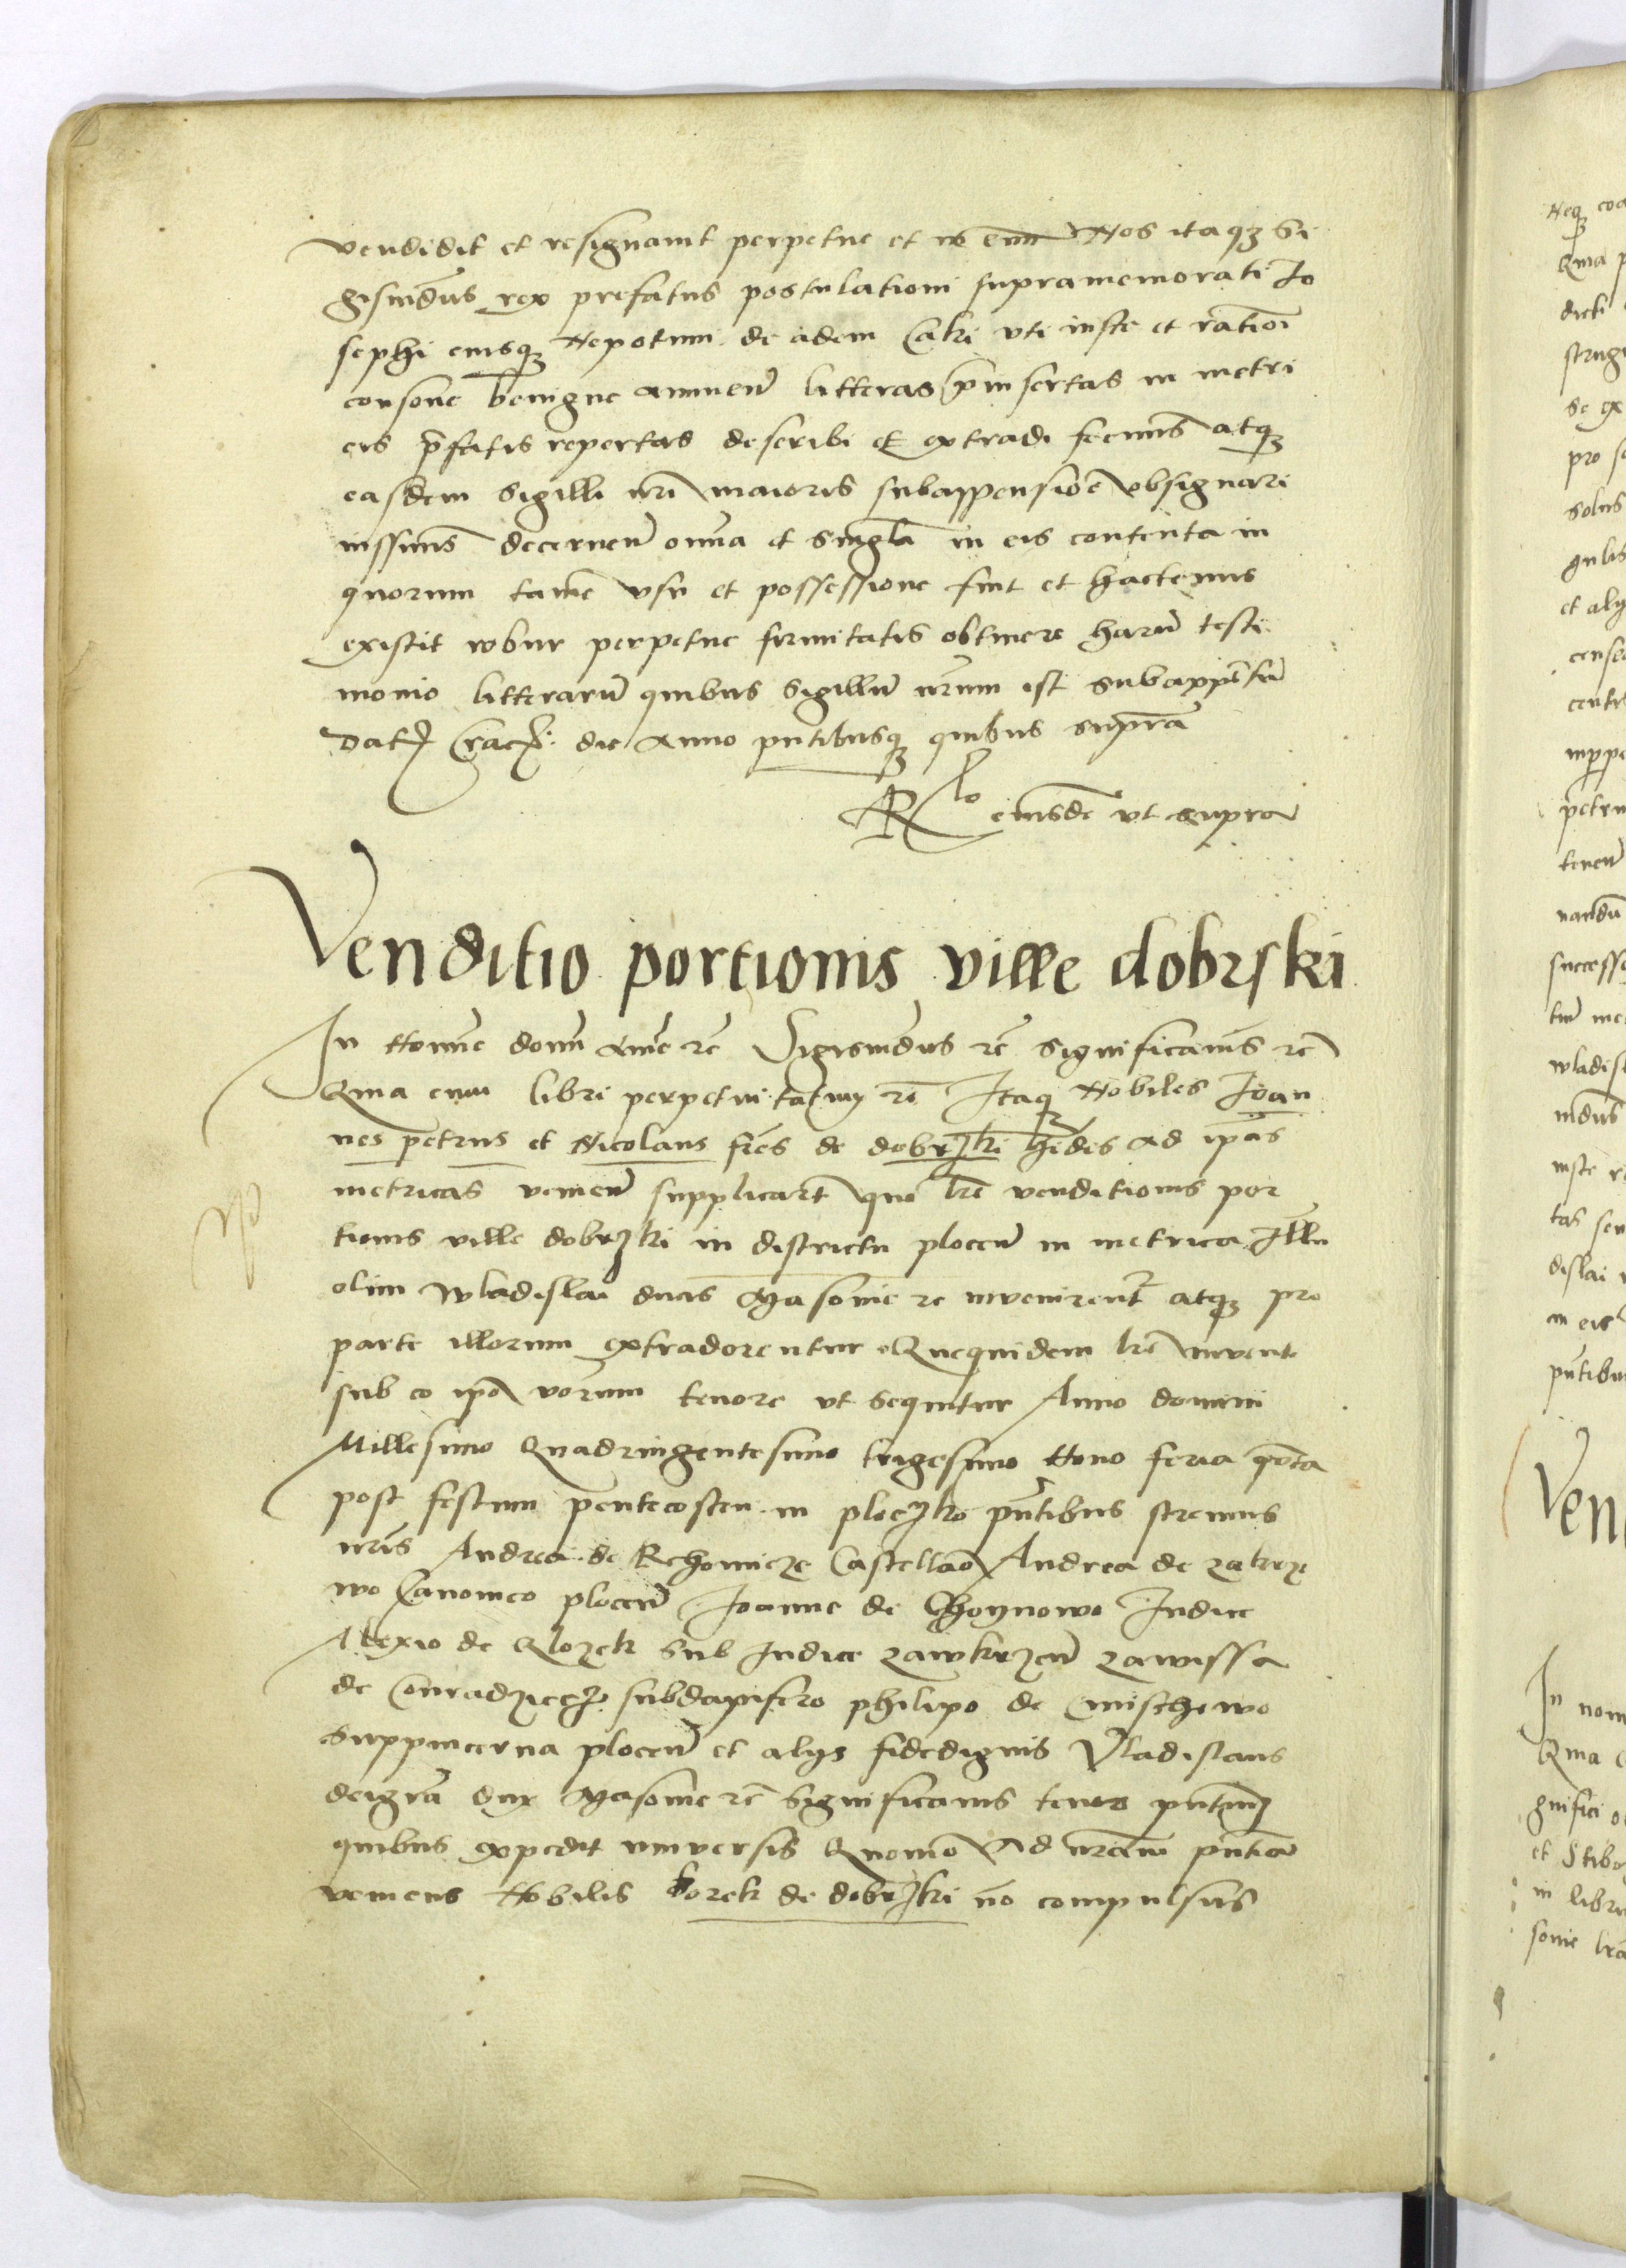 vendidit et resignavit perpetue et in Nos itaqz Si
gismūdus rex prefatus postulationi supramemorati Jo
sephi eiusqz Nepotum de adem Calki uti iuste et rationi
consone benigne annuen̄ litteras p̄insertas in metri
cis p̄fatis repertas describi et extradi fecimus atqz
easdem sigilli nr̄i maioris subappensione obsignari
iussimus decernen̄ omnia et singl̄a in eis contenta in
quorum tamē usu et possessione fuit et hactenus
existit robur perpetue firmitatis obtinere harū testi
monio litterarū quibus Sigillū nr̄um est subappēsū
Dat Crac: die Anno pn̄tibusqz quibus supra
Rlo eiusdē ut supra
Venditio portionis ville dobrski
In Nomīe domī Amē rc̄ Sigismūdus rc̄ significamus rc̄
Quia cum libri perpetuitatum rc̄ Itaqz Nobiles Joan
nes petrus et Nicolaus fr̄es de dobrzki hēdes ad ip̄as
metricas venien̄ supplicarūt quo lr̄e venditionis por
tionis ville dobrzki in districtu plocen̄ in metrica Illu
olim wladislai ducis Masovie rc invenirent atqz pro
parte illorum extraderentur Quequidem lr̄e invente
sub eo ip̄o verorum tenore ut sequitur Anno domini
Millesimo Quadringentesimo trigesimo Nono feria quīta
post festum pentecosten in ploczko pn̄tibus strenuis
viris Andrea de Rchomicze Castellāo Andrea de zakrze
wo Canonico plocen̄ Joanne de Choynowo Judice
Alexio de Glozek Sub Judice zawkrzen̄ zawissa
de Conradziecz subdapifero philipo de Cmischewo
Suppincerna plocen̄ et alys fidedignis Vladislaus
deigrā dux Masovie rc̄ Significamus tenore pn̄tium
quibus expedit universis Quomō Ad nr̄am pn̄tiā
veniens Nobilis borek de dobrzki nō compulsus